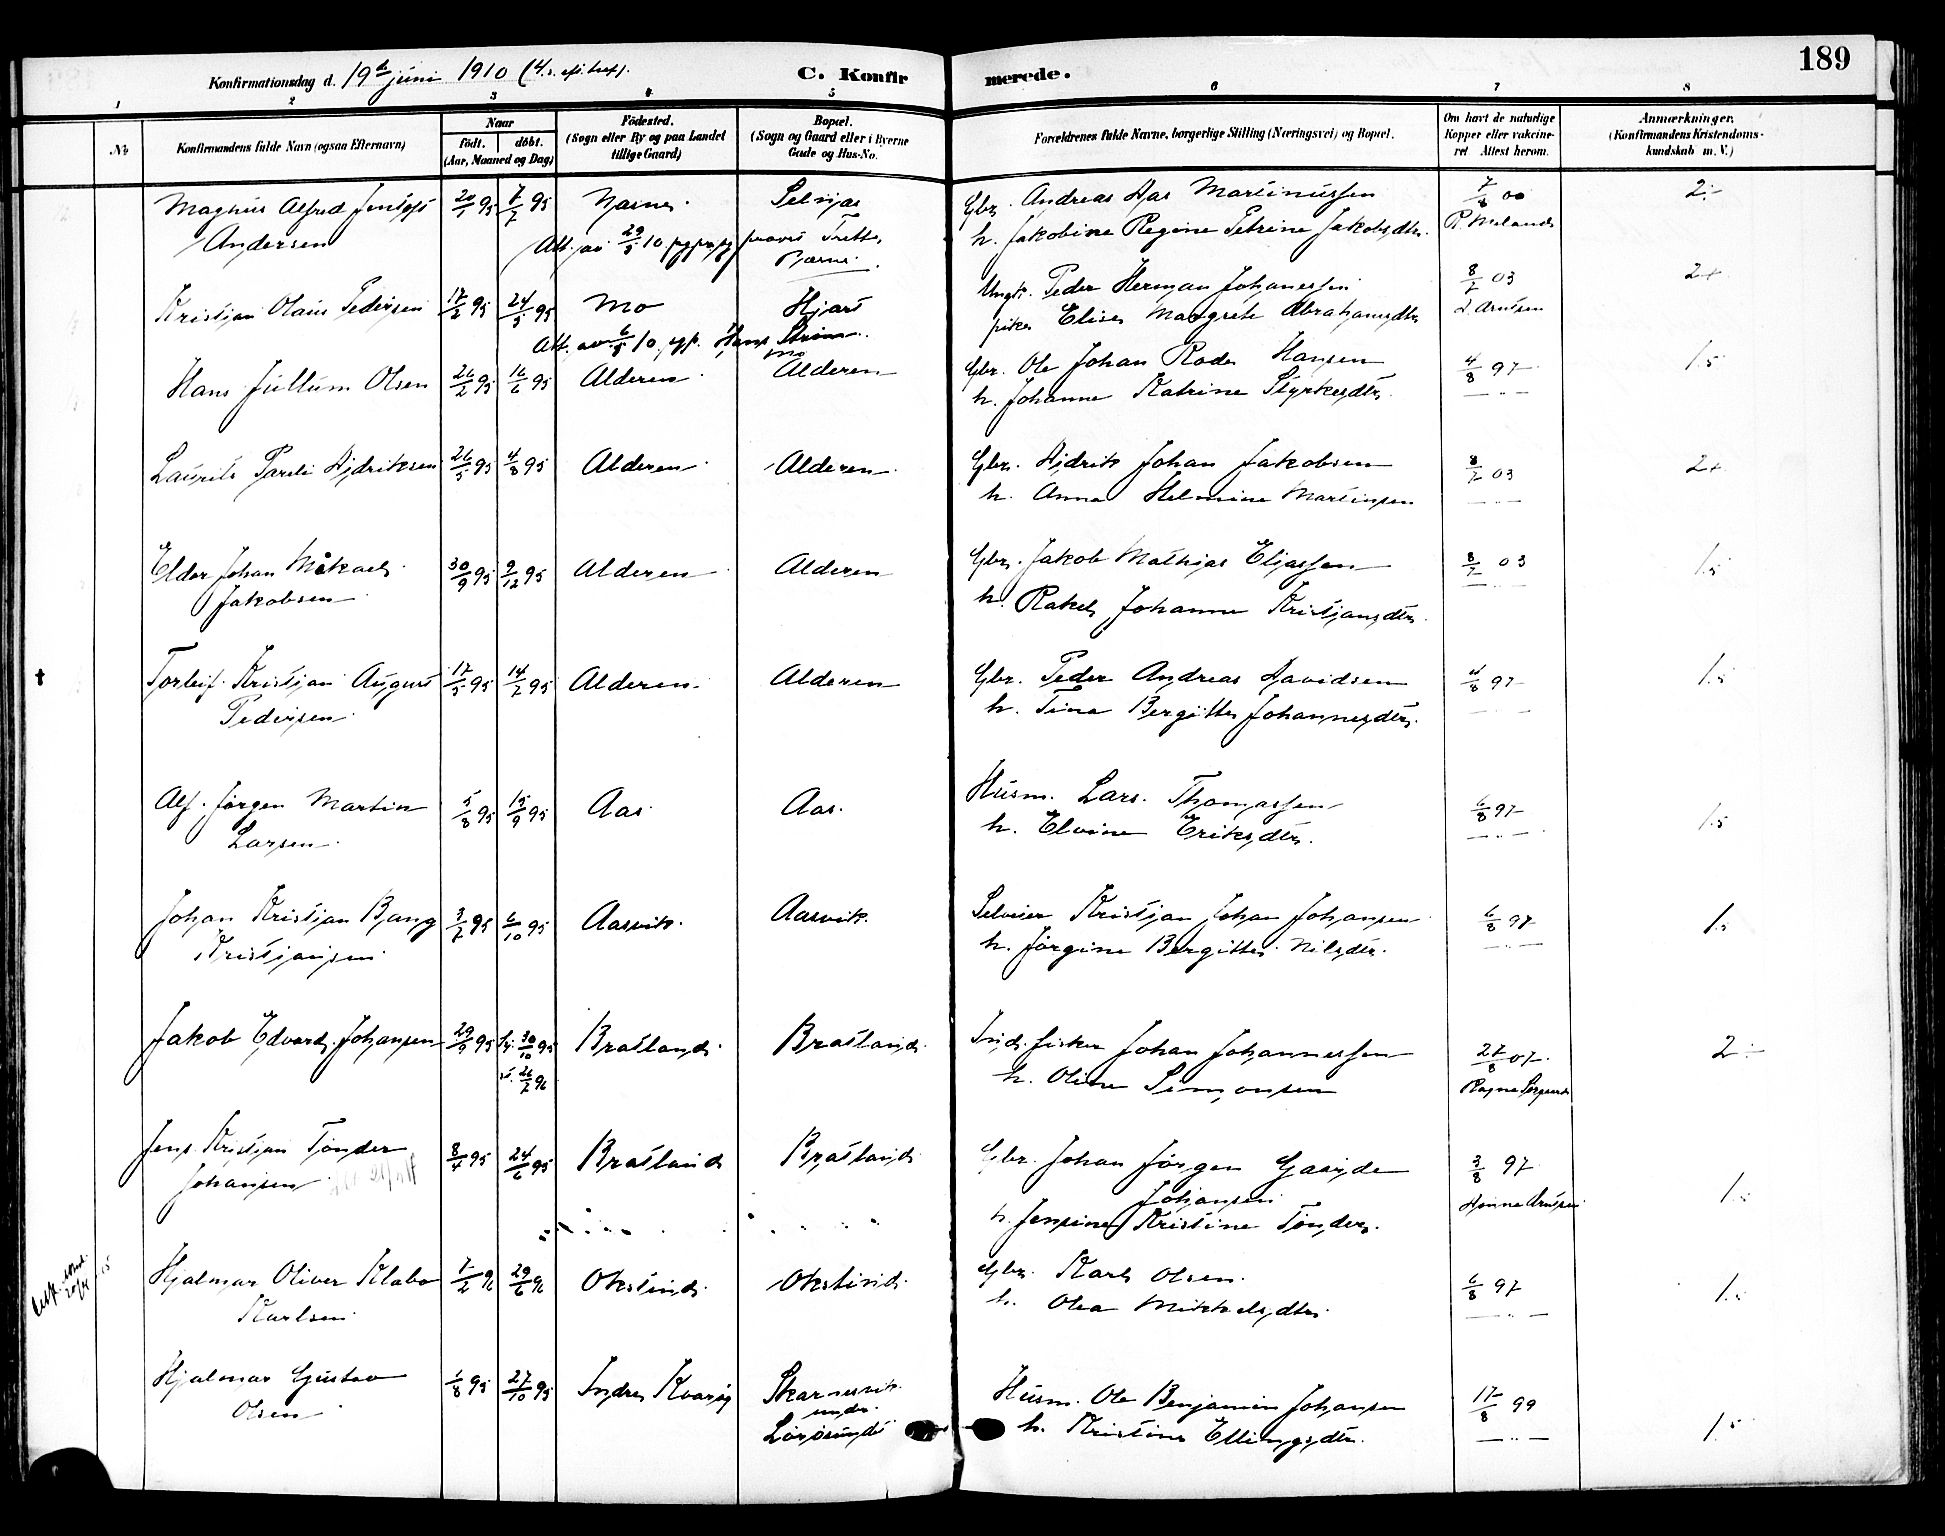 189
Konfirmationsdag d. 19de juni 1910 (4. s. e. tref.
C. Konfirmerede.
1 2 3 4 5 6 7 8
No.
Konfirmandens fulde Navn (ogsaa Efternavn)
Naar
født. døbt.
(Aar, Maaned og Dag)
Fødested.
(Sogn eller By og paa Landet
tillige Gaard)
Bopæl.
(Sogn og Gaard eller i Byerne
Gade og Hus-No.
Forældrenes fulde Navne, borgerlige Stilling (Næringsvei) og Bopæl.
Om havt de naturlige
Kopper eller vakcine-
ret Attest herom.
Anmærkninger.
(Konfirmandens Kristendoms-
kundskab m. V.)
Magnus Alfred 20/1 95 7/7 95 Gbr. Andreas Aas Martinussen 7/8 00 2÷
Andersen h. Jakobine Regine Petrine Jakobsdtr.
Att. av 29/5 10
Kristjan Olaus Pedersen 17/2 95 24/5 95 Mo Ungk. Peder Herman Johanessen 8/7 03 2+
pike Elise Margrete Abrahamsdtr
Att. av 6/5 10
Hans Jullum Olsen 26/2 95 16/6 95 Alderen Alderen Gbr. Ole Johan Rode Hansen 4/8 97 1.5
h. Johanne Katrine Styrkesdtr.
Laurits Pareli Hjdriksen 26/5 95 4/8 95 Alderen Alderen Gbr. Hjdrik Johan Jakobsen 8/7 03 2+
h. Anna Helmine Martinsen
Eldor Johan Mikael 30/9 95 9/12 95 Alderen Alderen Gbr. Jakob Mathias Eliassen 8/7 03 1.5
Jakobsen h. Rakel Johanne Kristjansdtr.
† Torleif Kristjan August 17/5 95 14/7 95 Alderen Alderen Gbr. Peder Andreas Davidsen 4/8 97 1.5
Pedersen h. Tina Bergitte Johannesdtr.
Alf Jørgen Martin 5/8 95 15/9 95 Aas Aas Husm. Lars Thomassen 6/8 97 1.5
Larsen h. Elvine Eriksdtr.
Johan Kristjan Bang 3/7 95 6/10 95 Aasvik Aasvik Selveier Kristjan Johan Johansen 6/8 97 1.5
Kristjansen h. Jørgine Bergitte Nilsdtr.
Jakob Edvard Johansen 29/9 95 30/10 95 Bratland Bratland Ind. fisker Johan Johannessen 27/8 07 2÷
26/7 96 h. Oline Simonsen
Jens Kristjan Tønder 8/4 95 24/6 95 Bratland Bratland Gbr. Johan Jørgen Gaarde 3/8 97 1.5
Johansen Johansen
h. Jensine Kristine Tønder
Hjalmar Oliver Klabo 1/2 96 29/6 96 Okstind Okstind Gbr. Karl Olsen 6/8 97 1.5
Karlsen h. Olea Mikkelsdtr.
Hjalmar Gustav 1/8 95 27/10 95 Indre Kvarøy Skarsvik Husm. Ole Benjamin Johansen 17/8 99 1.5
Olsen under
Lurøsund h. Kristine Ellingsdtr.